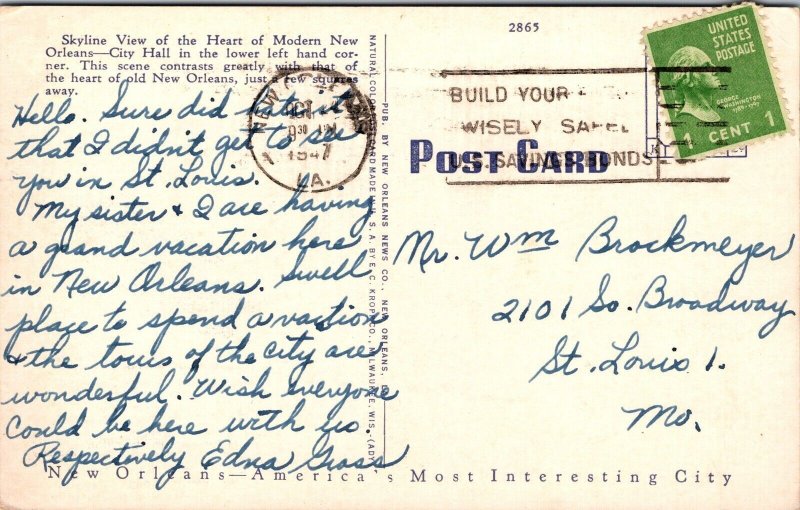 Skyline View of the Heart of Modern New
Orleans—City Hall in the lower left hand cor-
ner. This scene contrasts greatly with that of
the heart of old New Orleans, just a few squares
away.
Hello. Sure did hate it
that I didn't get to see
you in St. Louis.
My sister & I are having
a grand vacation here
in New Orleans. Swell
place to spend a vaction
& the tours of the city are
wonderful. Wish everyone
could be here with us.
Respectively Edna Grass
NEW ORLEANS
OCT
9 30 PM
1947
LA.
NATURAL COLOR POST CARD MADE IN U. S. A. BY E. C. KROPP CO., MILWAUKEE, WIS.
PUB. BY NEW ORLEANS NEWS CO., NEW ORLEANS, LA.
2865
BUILD YOUR
WISELY SAFEL
U.S. SAVINGS BONDS
POST CARD
UNITED
STATES
POSTAGE
GEORGE
WASHINGTON
1789-1797
1 CENT 1
Mr. Wm Brockmeyer
2101 So. Broadway
St. Louis 1.
Mo.
New Orleans—America's Most Interesting City